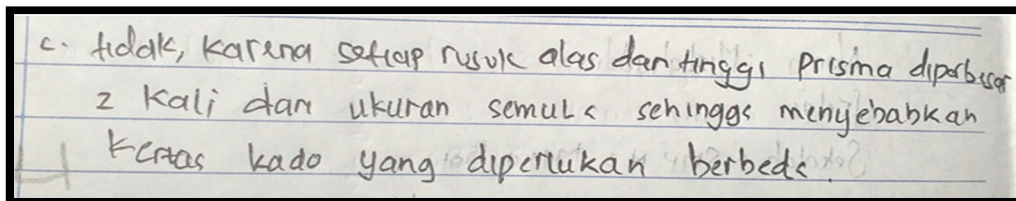 c. tidak, karena setiap rusuk alas dan tinggi prisma diperbesar
2 kali dari ukuran semula sehingga menyebabkan
kertas kado yang diperlukan berbeda.